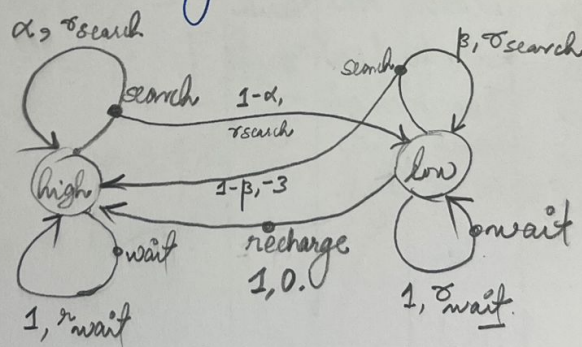 α, rsearch
β, rsearch
search
search
1-α,
rsearch
high
low
1-β, -3
wait
recharge
wait
1, 0.
1, rwait
1, rwait.